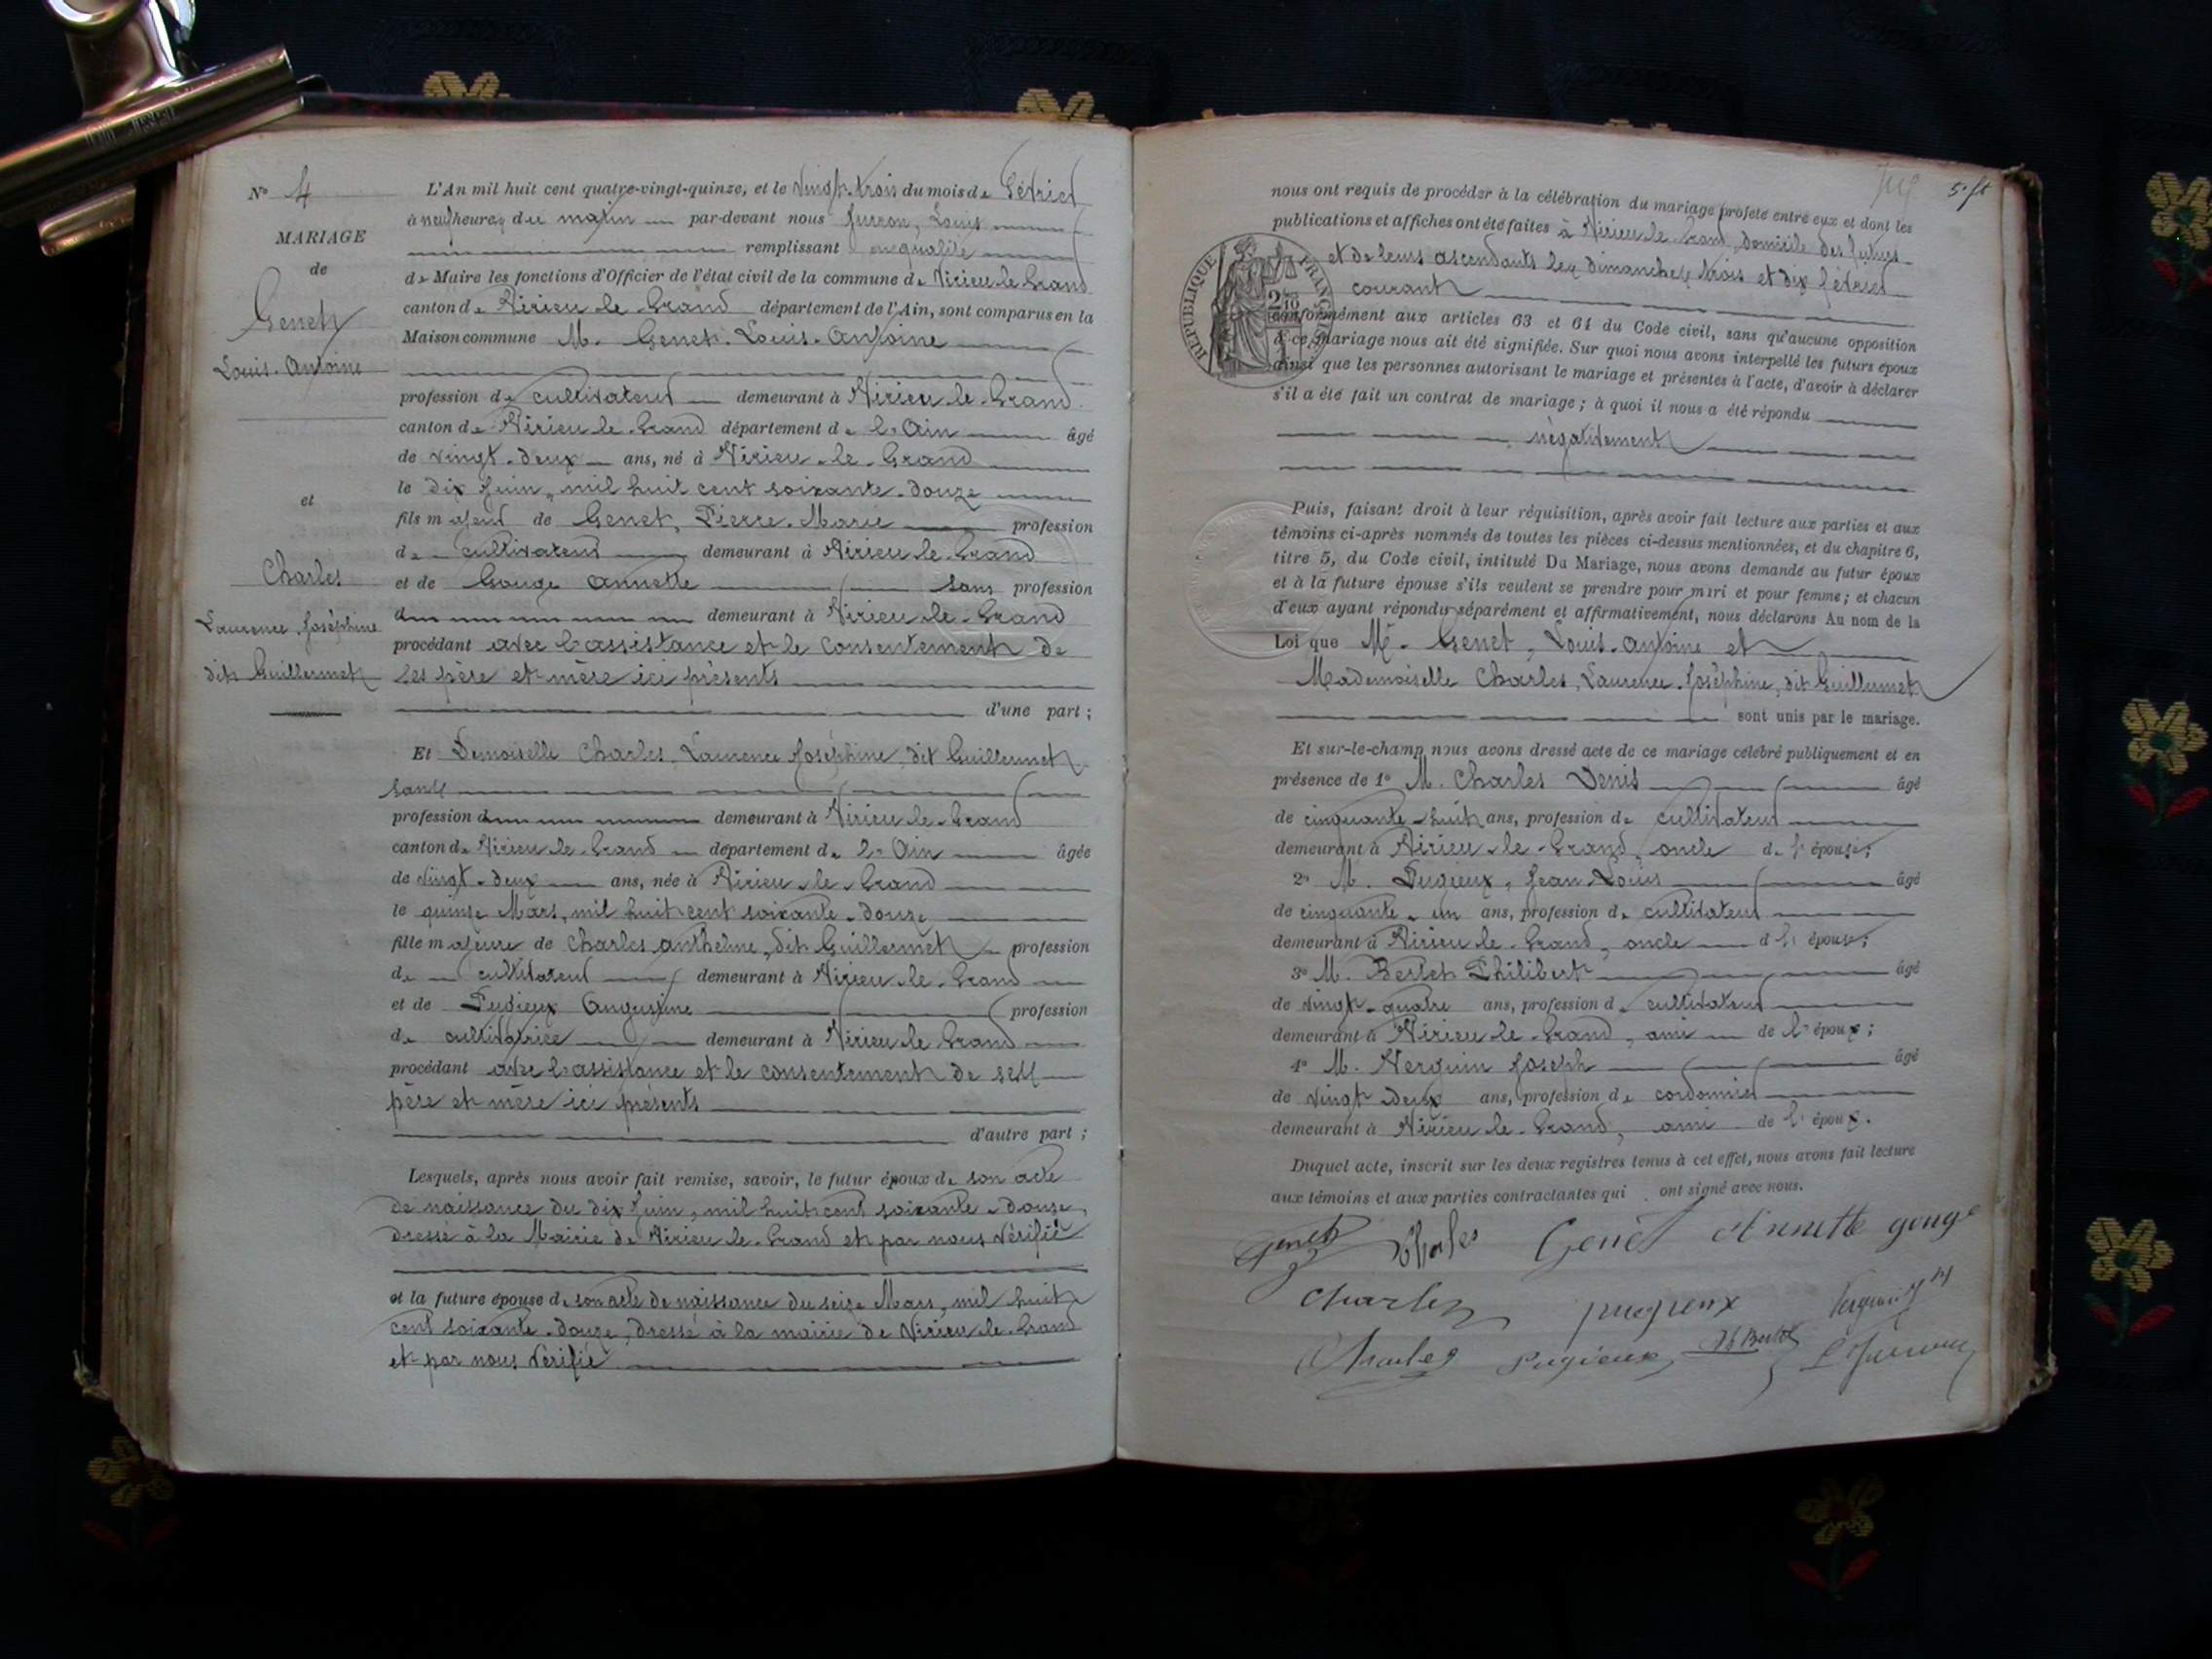 N° 4
MARIAGE
de
Genet
Louis-Antoine
et
Charles
Laurence Joséphine
dit Guillermet
L'An mil huit cent quatre-vingt-quinze, et le vingt-trois du mois de Février
à neuf heures du matin par-devant nous Juron, Louis
remplissant en qualité
de Maire les fonctions d'Officier de l'état civil de la commune de Virieu-le-Grand
canton de Virieu-le-Grand département de l'Ain, sont comparus en la
Maison commune M. Genet. Louis-Antoine
profession de cultivateur demeurant à Virieu-le-Grand
canton de Virieu-le-Grand département de l'Ain âgé
de vingt-deux ans, né à Virieu-le-Grand
le dix Juin, mil huit cent soixante-douze
fils majeur de Genet, Pierre-Marie profession
de cultivateur demeurant à Virieu-le-Grand
et de Gouge Annette sans profession
d demeurant à Virieu-le-Grand
procédant avec l'assistance et le consentement de
ses père et mère ici présents
d'une part ;
Et Demoiselle Charles, Laurence Joséphine, dit Guillermet
sans
profession d demeurant à Virieu-le-Grand
canton de Virieu-le-Grand département de l'Ain âgée
de vingt-deux ans, née à Virieu-le-Grand
le quinze Mars, mil huit cent soixante-douze
fille majeure de Charles Anthelme, dit Guillermet profession
de cultivateur demeurant à Virieu-le-Grand
et de Pugieux Augustine profession
de cultivatrice demeurant à Virieu-le-Grand
procédant avec l'assistance et le consentement de ses
père et mère ici présents
d'autre part ;
Lesquels, après nous avoir fait remise, savoir, le futur époux de son acte
de naissance du dix Juin, mil huit cent soixante-douze,
dressé à la Mairie de Virieu-le-Grand et par nous vérifié
et la future épouse de son acte de naissance du seize Mars, mil huit
cent soixante-douze, dressé à la mairie de Virieu-le-Grand
et par nous vérifié
5. ft
nous ont requis de procéder à la célébration du mariage projeté entre eux et dont les
publications et affiches ont été faites à Virieu-le-Grand, domicile des futurs
et de leurs ascendants les dimanches trois et dix février
courant
RÉPUBLIQUE FRANÇAISE
conformément aux articles 63 et 64 du Code civil, sans qu'aucune opposition
à ce mariage nous ait été signifiée. Sur quoi nous avons interpellé les futurs époux
ainsi que les personnes autorisant le mariage et présentes à l'acte, d'avoir à déclarer
s'il a été fait un contrat de mariage ; à quoi il nous a été répondu
négativement
Puis, faisant droit à leur réquisition, après avoir fait lecture aux parties et aux
témoins ci-après nommés de toutes les pièces ci-dessus mentionnées, et du chapitre 6,
titre 5, du Code civil, intitulé Du Mariage, nous avons demandé au futur époux
et à la future épouse s'ils veulent se prendre pour mari et pour femme ; et chacun
d'eux ayant répondu séparément et affirmativement, nous déclarons Au nom de la
Loi que M. Genet, Louis-Antoine et
Mademoiselle Charles, Laurence-Joséphine, dit Guillermet
sont unis par le mariage.
Et sur-le-champ nous avons dressé acte de ce mariage célébré publiquement et en
présence de 1° M. Charles Denis âgé
de cinquante-huit ans, profession de cultivateur
demeurant à Virieu-le-Grand, oncle de l'épouse ;
2° M. Pugieux, Jean Louis âgé
de cinquante-un ans, profession de cultivateur
demeurant à Virieu-le-Grand, oncle de l'épouse ;
3° M. Berlet Philibert âgé
de vingt-quatre ans, profession de cultivateur
demeurant à Virieu-le-Grand, ami de l'époux ;
4° M. Verguin Joseph âgé
de vingt-deux ans, profession de cordonnier
demeurant à Virieu-le-Grand, ami de l'époux.
Duquel acte, inscrit sur les deux registres tenus à cet effet, nous avons fait lecture
aux témoins et aux parties contractantes qui ont signé avec nous.
Genet Charles Genet Annette gouge
Charles pugieux
Charles Pugieux Ph Berlet